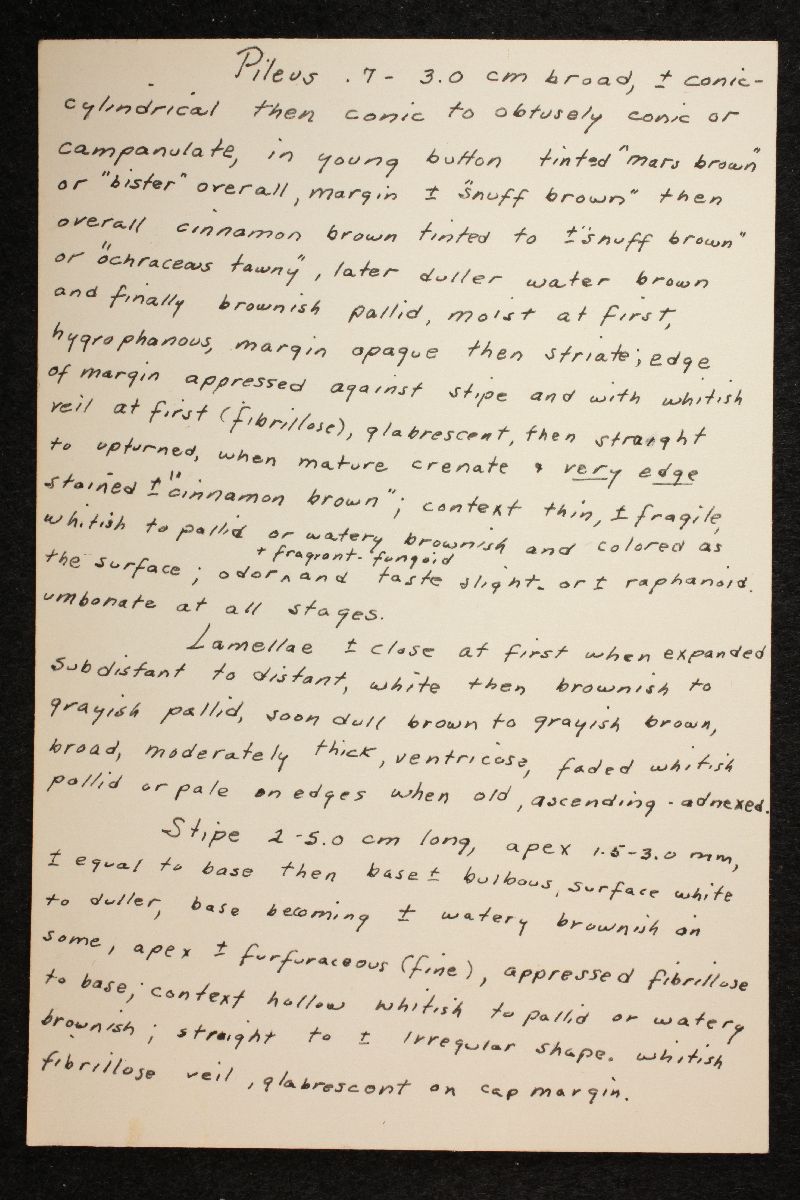 Pileus .7 - 3.0 cm broad, ± conic-
cylindrical then conic to obtusely conic or
campanulate, in young button tinted "mars brown"
or "bister" overall, margin ± "snuff brown" then
overall cinnamon brown tinted to ± "snuff brown"
or "ochraceous tawny", later duller water brown
and finally brownish pallid, moist at first,
hygrophanous, margin opaque then striate; edge
of margin appressed against stipe and with whitish
veil at first (fibrillose), glabrescent, then straight
to upturned, when mature crenate & very edge
stained ± "cinnamon brown"; context thin, ± fragile,
whitish to pallid or watery brownish and colored as
+ fragrant-fungoid
the surface; odor ^ and taste slight - or ± raphanoid.
umbonate at all stages.
Lamellae ± close at first when expanded
subdistant to distant, white then brownish to
grayish pallid, soon dull brown to grayish brown,
broad, moderately thick, ventricose, faded whitish
pallid or pale on edges when old, ascending - adnexed.
Stipe 2 - 5.0 cm long, apex 1.5-3.0 mm,
± equal to base then base ± bulbous, surface white
to duller, base becoming ± watery brownish on
some, apex ± furfuraceous (fine), appressed fibrillose
to base; context hollow whitish to pallid or watery
brownish; straight to ± irregular shape. whitish
fibrillose veil, glabrescent on cap margin.